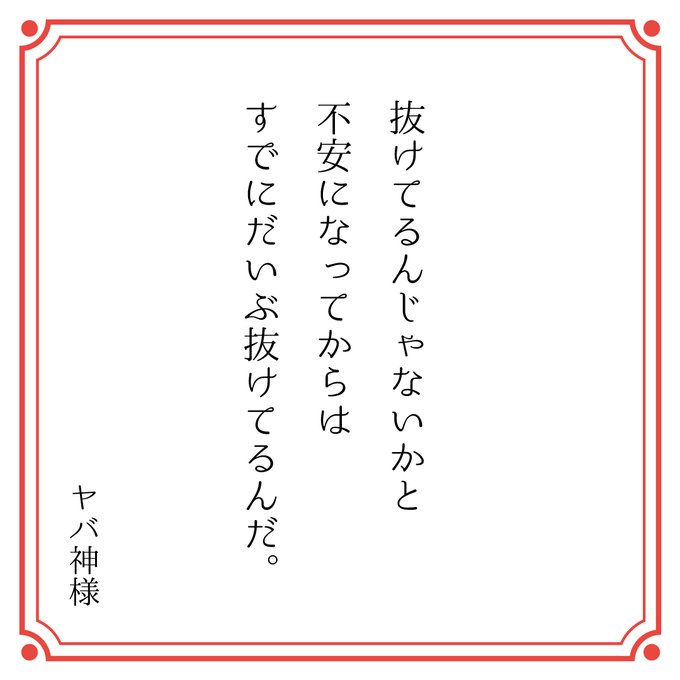 抜けてるんじゃないかと
不安になってからは
すでにだいぶ抜けてるんだ。
ヤバ神様